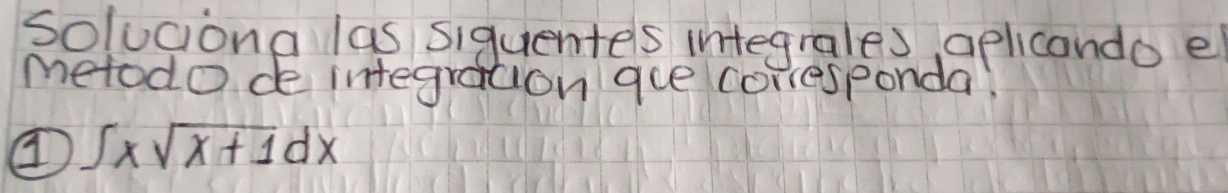 Soluciona las siguentes integrales, aplicando el
metodo de integración que corresponda.
① ∫x√x+1dx